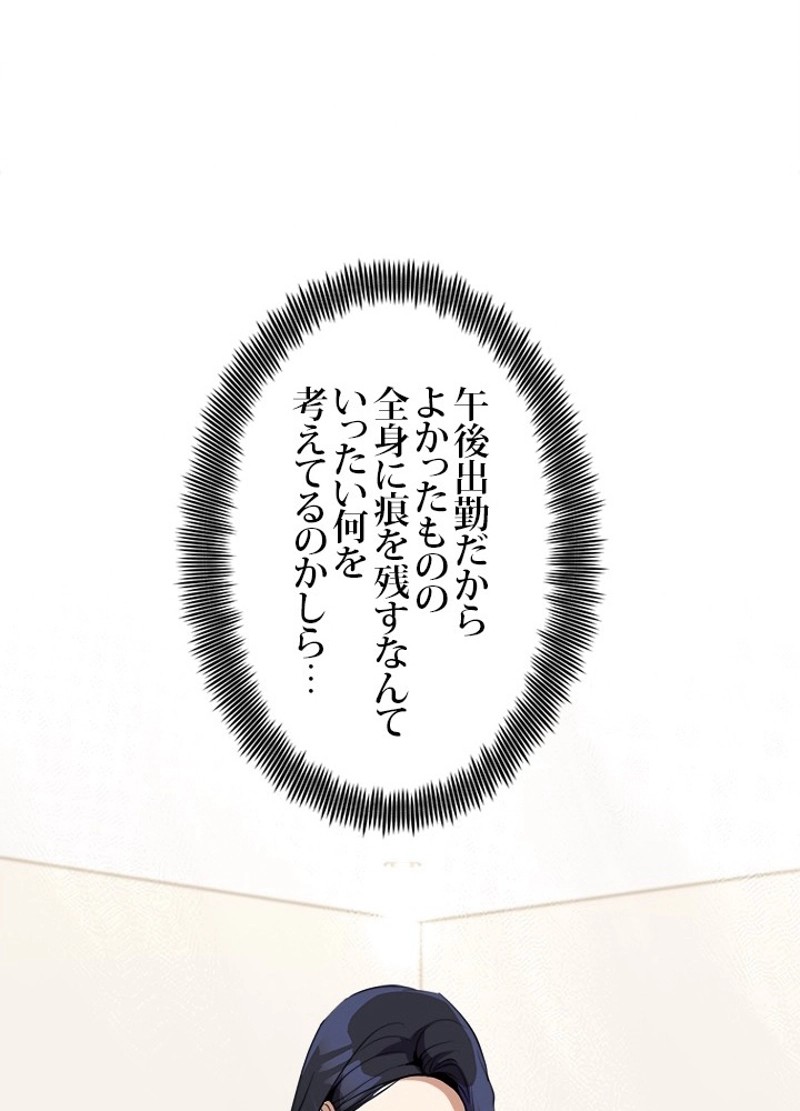 午後出勤だから
よかったものの
全身に痕を残すなんて
いったい何を
考えてるのかしら…